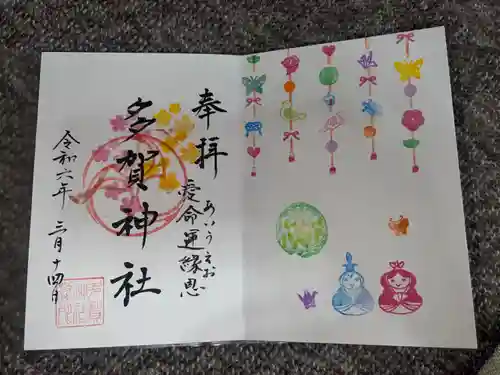 奉拝
あいうえお
愛命運縁恩
多賀神社
令和六年 三月十四日